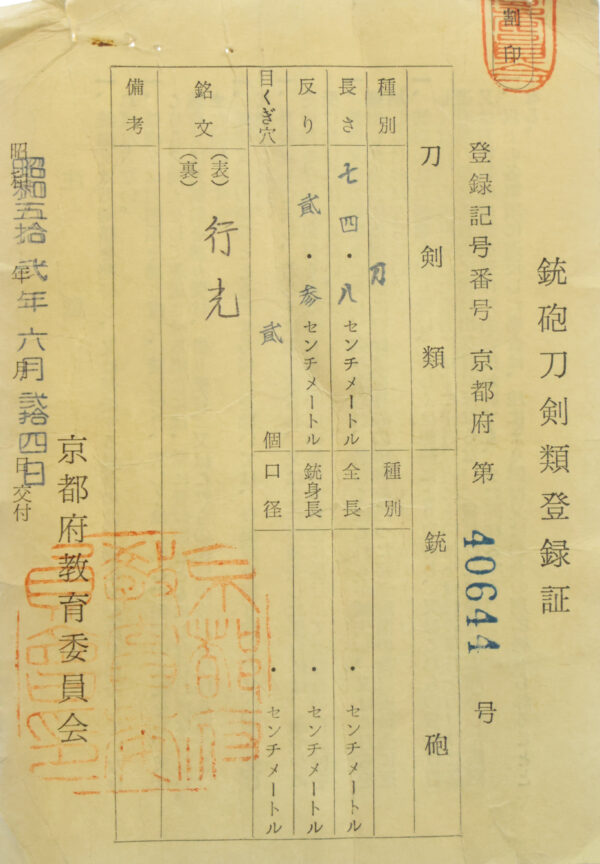 割印
銃砲刀剣類登録証
登録記号番号 京都府 第 40644 号
刀剣類
銃砲
種別 刀
種別
長さ 七四・八センチメートル
全長 ・ センチメートル
反り 貳・参センチメートル
銃身長 ・ センチメートル
目くぎ穴 貳 個
口径 ・ センチメートル
銘文 (表) 行光
(裏)
備考
昭和五拾弐年六月弐拾四日交付
京都府教育委員会